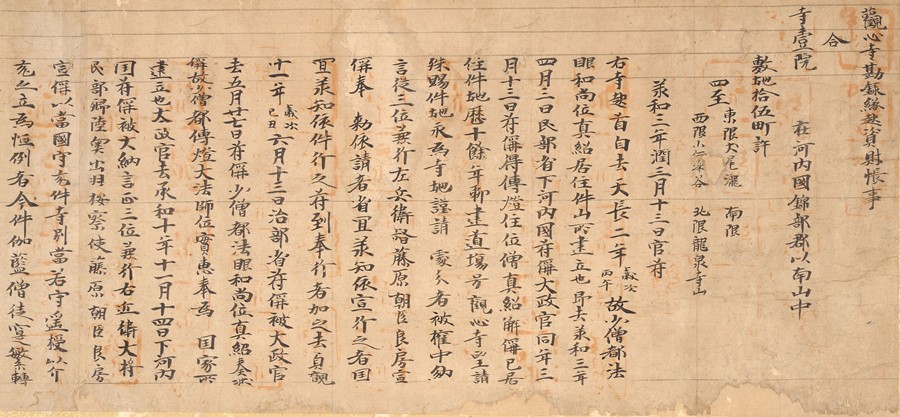 觀心寺勘録縁起資財帳事
合
寺壹院 在河内國錦部郡以南山中
敷地拾伍町許
四至 東限大尾瀧 南限
西限小仁深谷 北限龍泉寺山
承和三年潤三月十三日官符
右寺起首自去天長二年歳次丙午故少僧都法
眼和尚位真紹居住件山所建立也即去承和三年
四月三日民部省下河内國符偁太政官同年三
月十三日符偁得傳燈住位僧真紹解偁已居
住件地歴十餘年輙建道場号觀心寺望請
殊賜件地永為寺地謹請 者被權中納
言從三位兼行左兵衛督藤原朝臣良房宣
偁奉 勅依請者省宜承知依宣行之者國
宜承知依件行之符到奉行者加之去貞觀
十一年歳次己丑六月十三日治部省符偁被太政官
去五月廿二日符偁少僧都法眼和尚位真紹奏状
偁故少僧都傳燈大法師位實惠奉為 國家所
建立也太政官去承和十年十一月十四日下河内
國符偁被大納言正三位兼行右近衛大将
民部卿陸奥出羽按察使藤原朝臣良房
宣偁以當國守充件寺別當若守遥授以介
充之立為恒例者今件伽藍僧徒寔繁轉